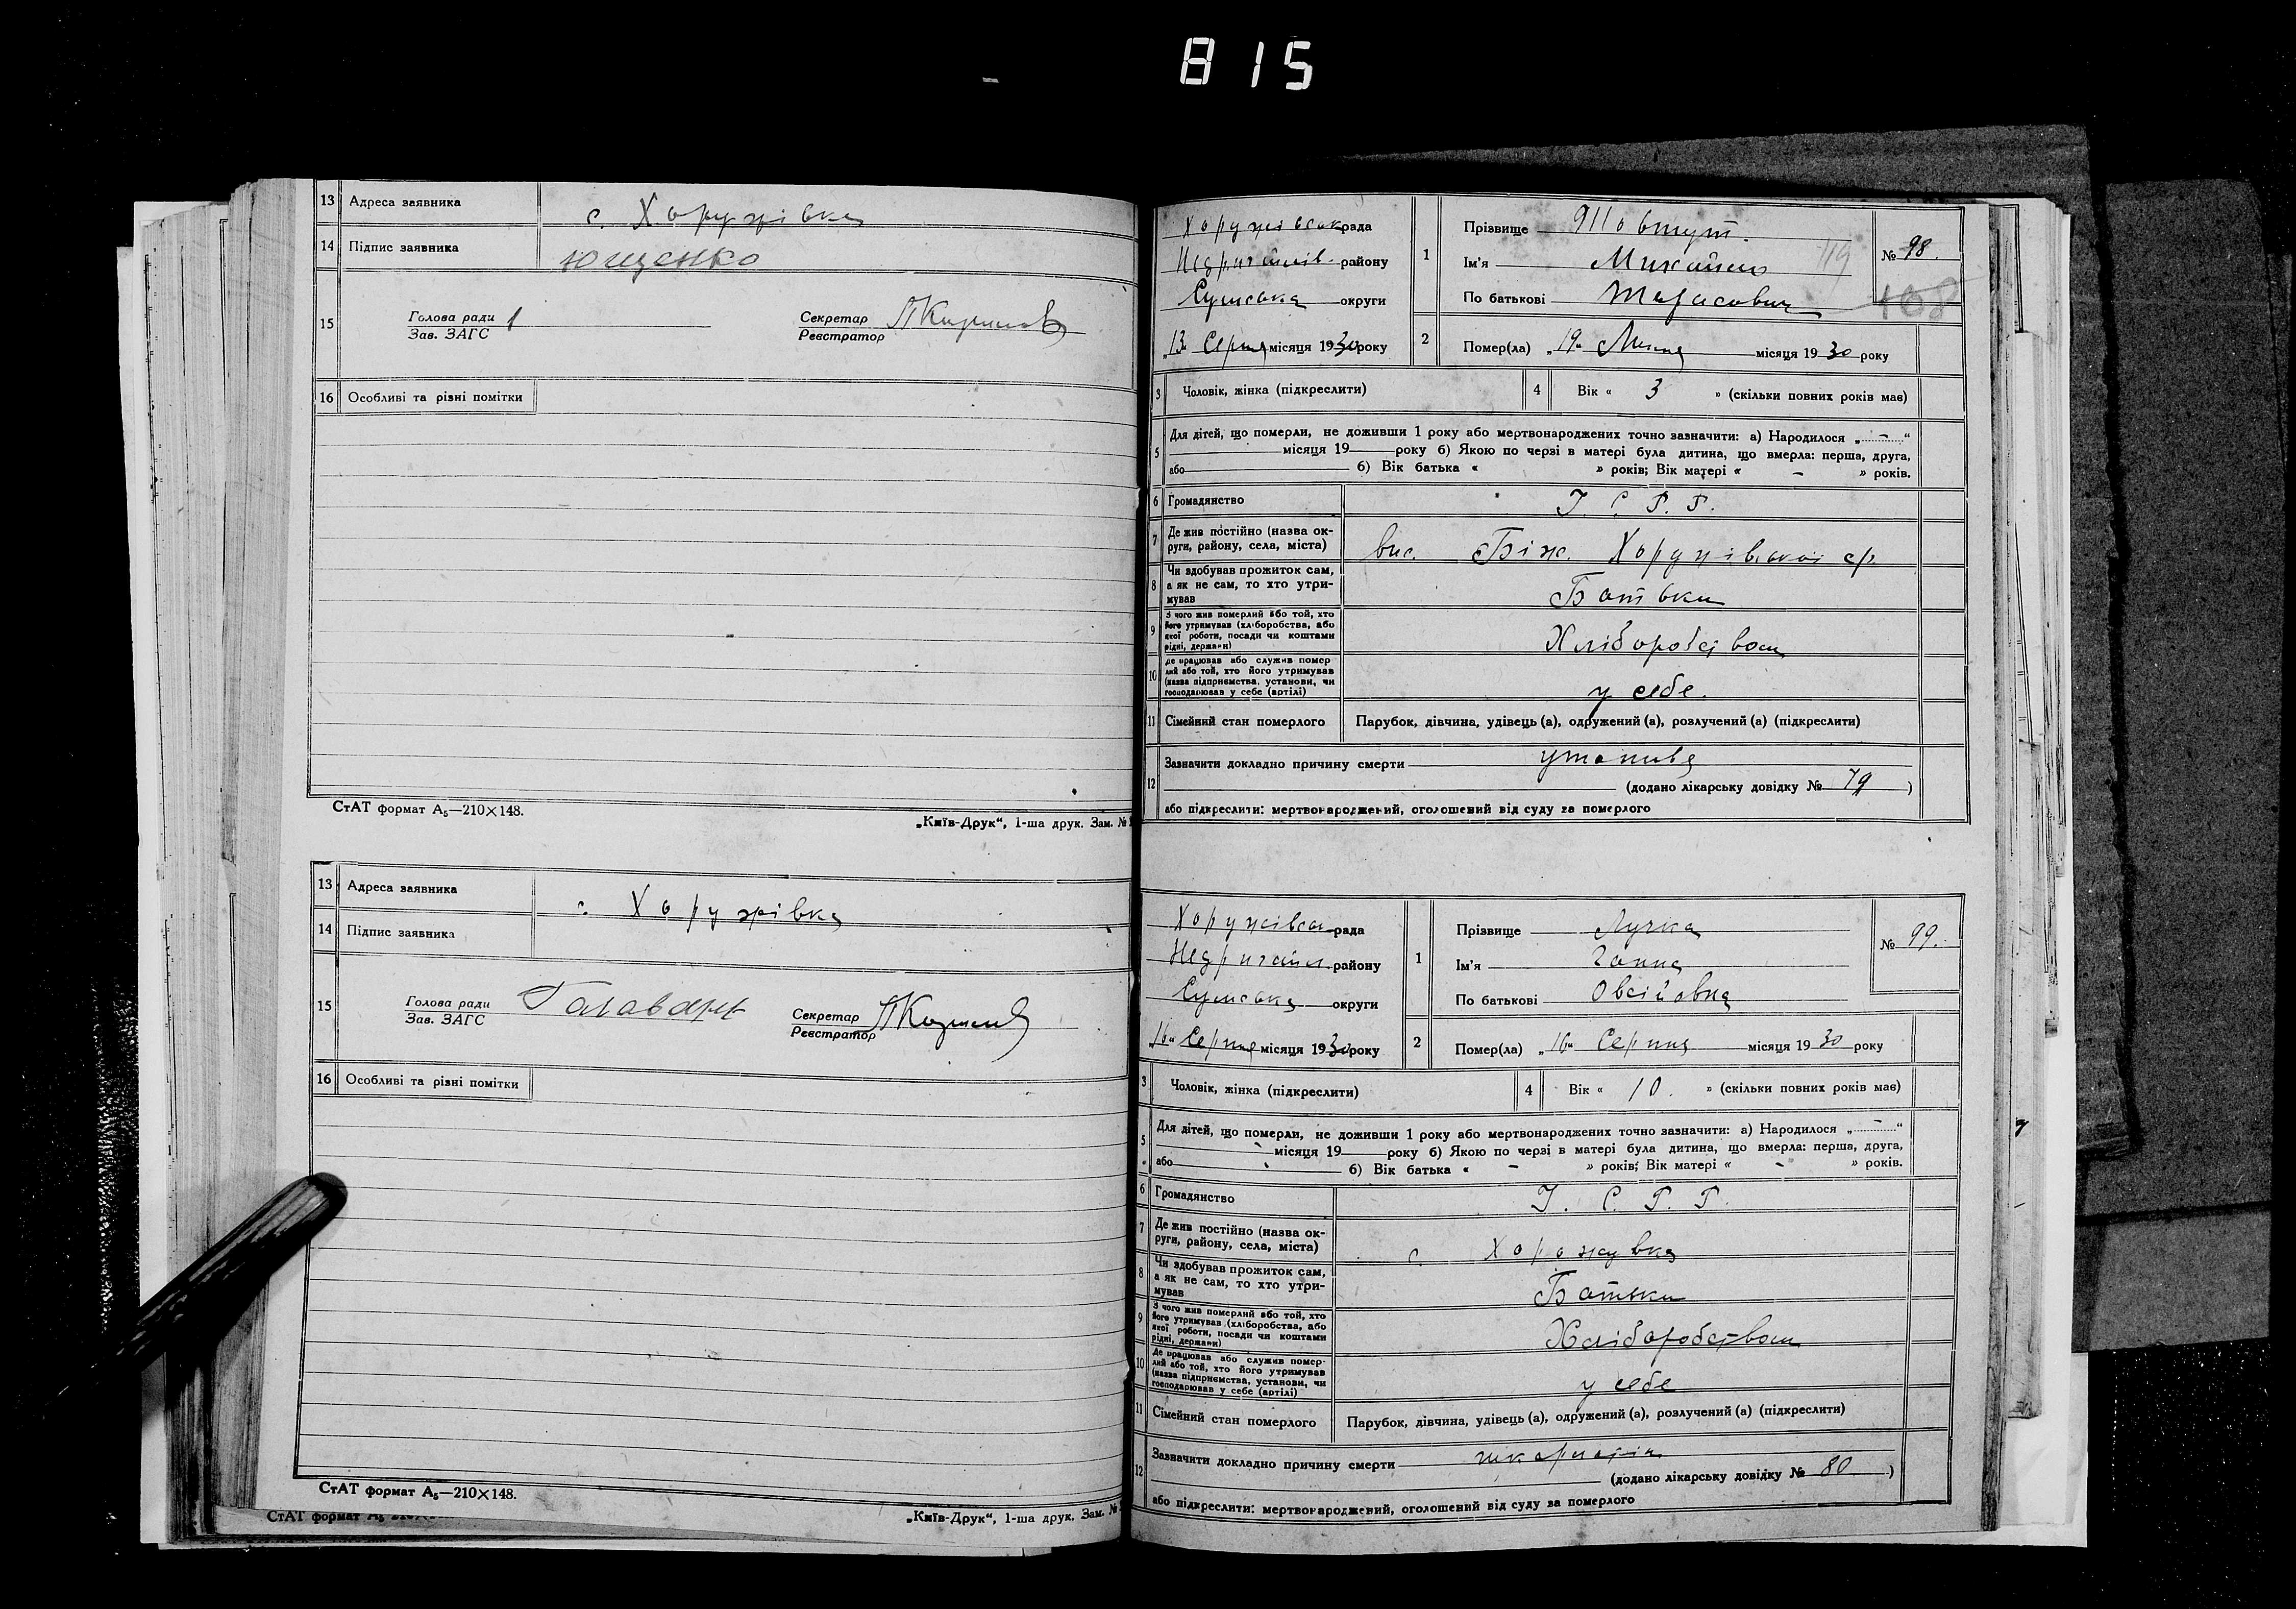 815
13 Адреса заявника с. Хоружівка
14 Підпис заявника Ющенко
15 Голова ради
Зав. ЗАГС
Секретар
Реєстратор
16 Особливі та різні помітки
СтАТ формат А₅—210×148.
„Київ-Друк“, 1-ша друк. Зам. №
13 Адреса заявника с. Хоружівка
14 Підпис заявника
15 Голова ради
Зав. ЗАГС
Секретар
Реєстратор
16 Особливі та різні помітки
СтАТ формат А₅—210×148.
„Київ-Друк“, 1-ша друк. Зам. №
СтАТ формат
Хоружівськ рада
Недригайлів. району
Сумська округи
„13“ Серпня місяця 1930 року
1 Прізвище
Ім'я Михайло
По батькові Тарасович
119
№ 98.
108
2 Помер(ла) „19“ Липня місяця 1930 року
3 Чоловік, жінка (підкреслити)
4 Вік « 3 » (скільки повних років має)
5 Для дітей, що померли, не доживши 1 року або мертвонароджених точно зазначити: а) Народилося „ – “
місяця 19 року б) Якою по черзі в матері була дитина, що вмерла: перша, друга,
або б) Вік батька « » років; Вік матері « – » років.
6 Громадянство У. С. Р. Р.
7 Де жив постійно (назва округи, району, села, міста) вис. Біж. Хоружівської ср.
8 Чи здобував прожиток сам, а як не сам, то хто утримував Батьки
9 З чого жив померлий або той, хто його утримував (хліборобства, або якої роботи, посади чи коштами рідні, держави) Хліборобством
10 Де працював або служив померлий або той, хто його утримував (назва підприємства, установи, чи господарював у себе (артілі) у себе.
11 Сімейний стан померлого Парубок, дівчина, удівець (а), одружений (а), розлучений (а) (підкреслити)
12 Зазначити докладно причину смерти
(додано лікарську довідку № 79)
або підкреслити: мертвонароджений, оголошений від суду за померлого
Хоружівськ рада
Недригайл. району
Сумська округи
„16“ Серпня місяця 1930 року
1 Прізвище Лучка
Ім'я Ганна
По батькові Овсіївна
№ 99.
2 Помер(ла) „16“ Серпня місяця 1930 року
3 Чоловік, жінка (підкреслити)
4 Вік « 10. » (скільки повних років має)
5 Для дітей, що померли, не доживши 1 року або мертвонароджених точно зазначити: а) Народилося „ – “
місяця 19 року б) Якою по черзі в матері була дитина, що вмерла: перша, друга,
або б) Вік батька « – » років; Вік матері « – » років.
6 Громадянство У. С. Р. Р.
7 Де жив постійно (назва округи, району, села, міста) с. Хоружівка
8 Чи здобував прожиток сам, а як не сам, то хто утримував Батьки
9 З чого жив померлий або той, хто його утримував (хліборобства, або якої роботи, посади чи коштами рідні, держави) Хліборобством
10 Де працював або служив померлий або той, хто його утримував (назва підприємства, установи, чи господарював у себе (артілі) у себе
11 Сімейний стан померлого Парубок, дівчина, удівець (а), одружений (а), розлучений (а) (підкреслити)
12 Зазначити докладно причину смерти шкарлатін
(додано лікарську довідку № 80.)
або підкреслити: мертвонароджений, оголошений від суду за померлого